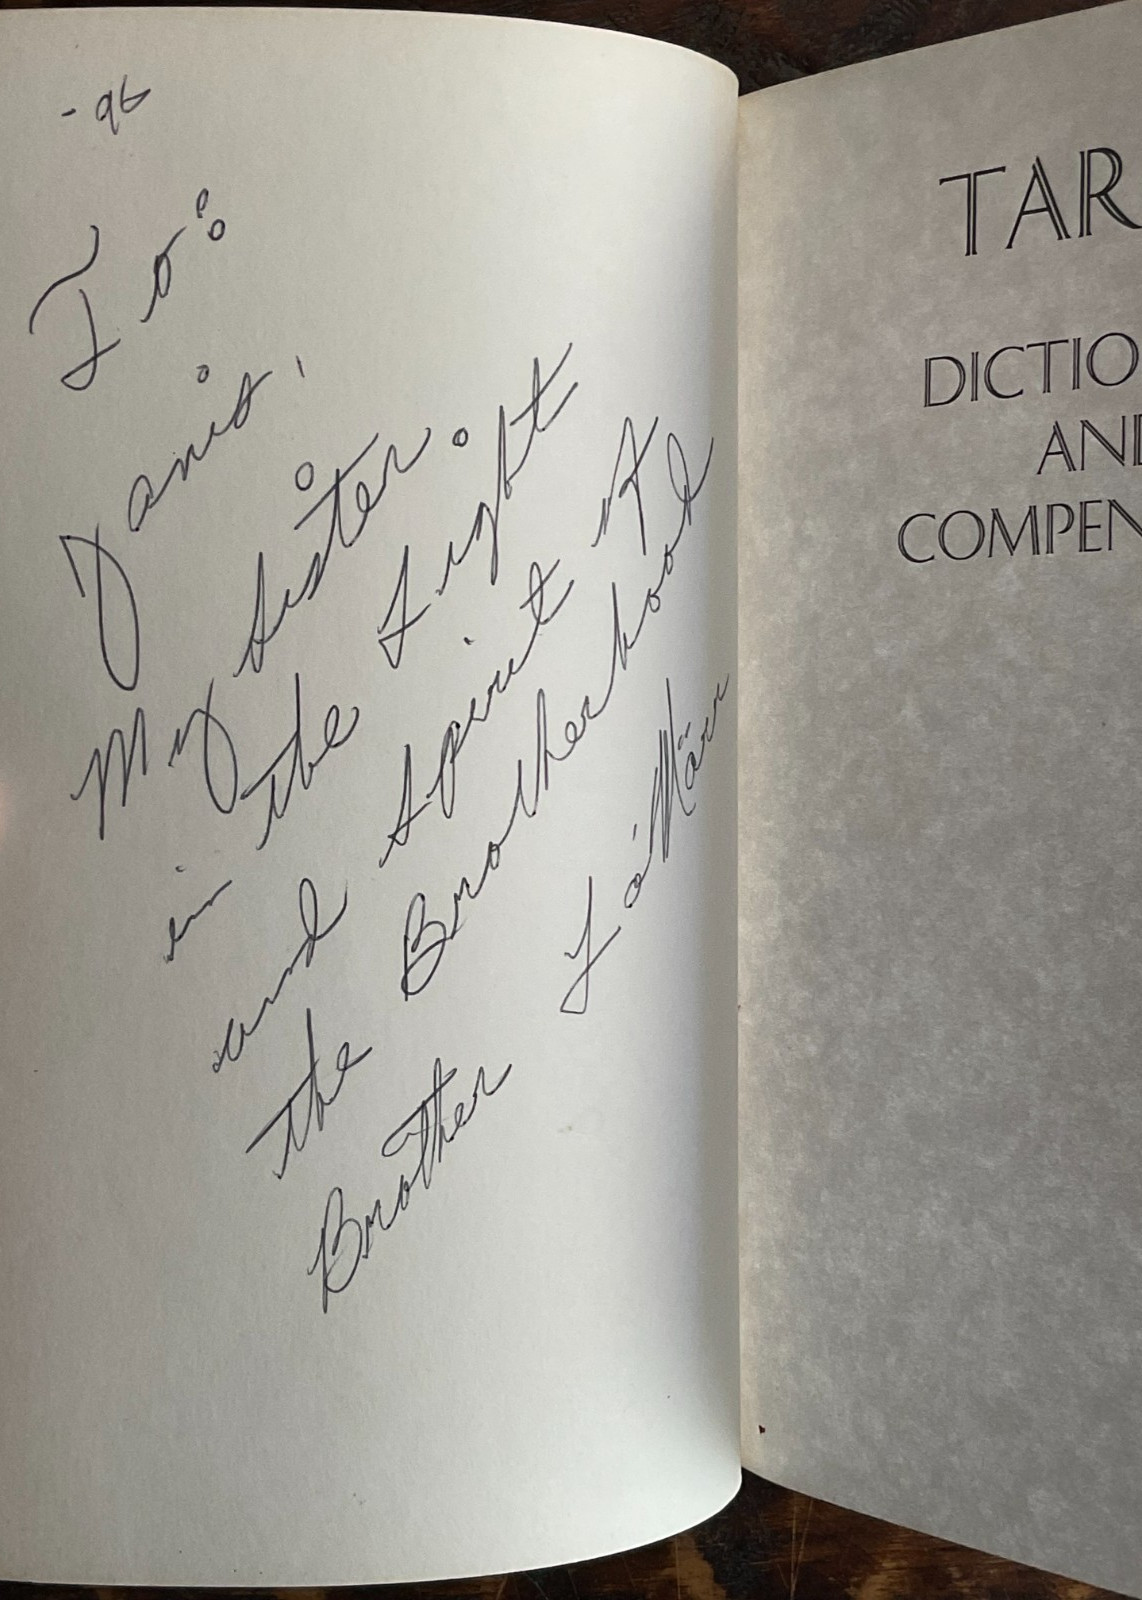 -96
To:
Janis,
My Sister:
in the Light
and Spirit of
the Brotherhood
Brother Ló Märr
TAR
DICTIO
AND
COMPEN